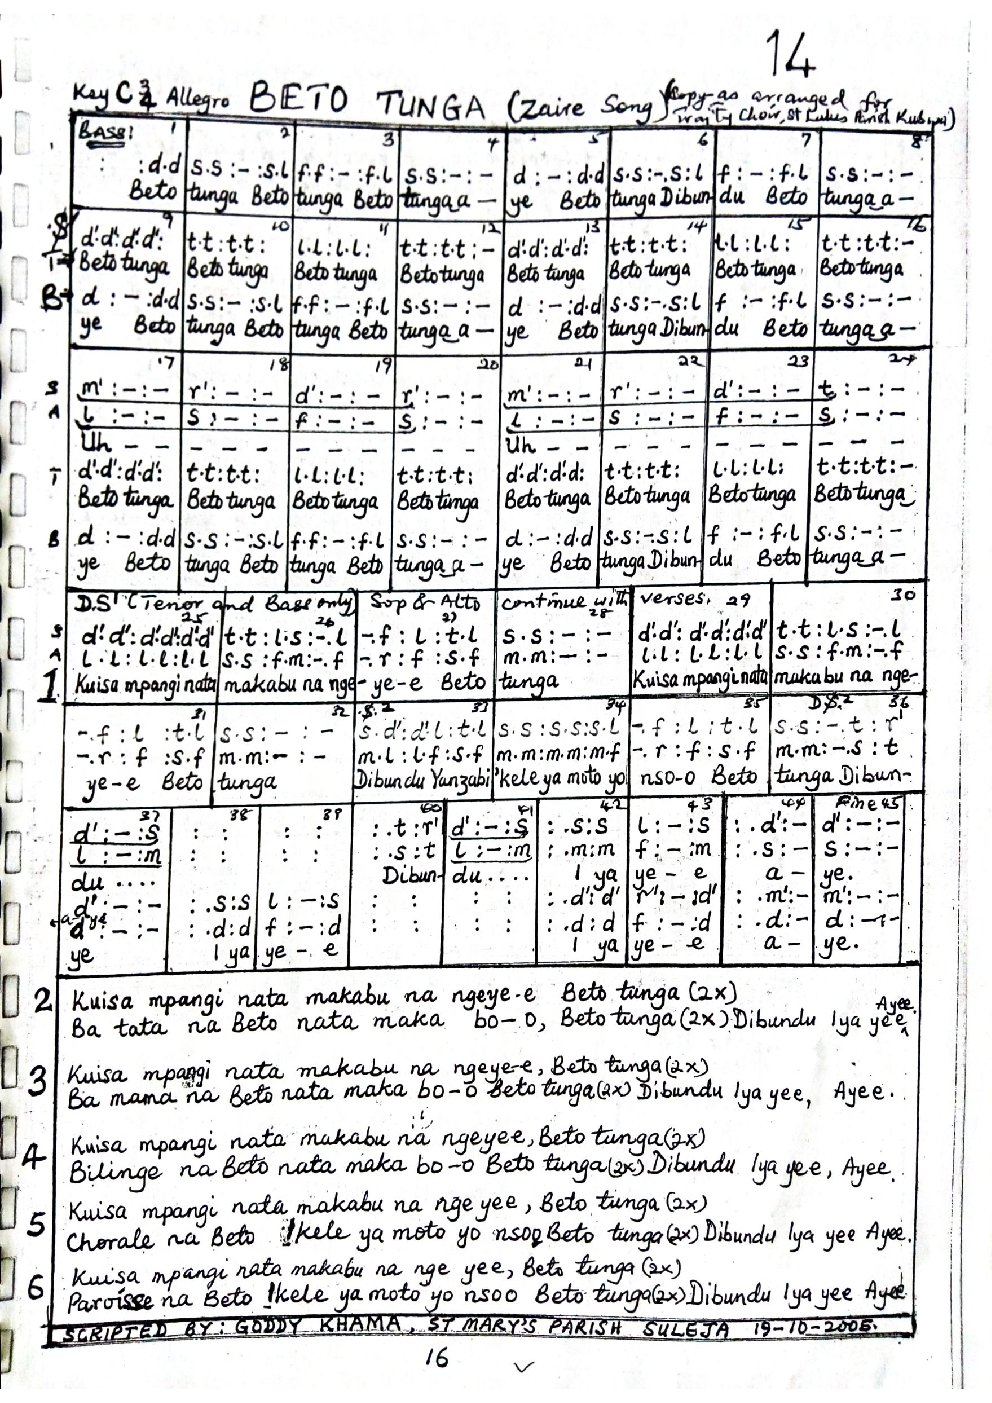 14
Key C 3/4 Allegro BETO TUNGA (Zaire Song) (Copy as arranged for
Trinity Choir, St Lukes Parish Kubwa)
BASS: 1 2 3 4 5 6 7 8
: :d.d s.s:-:s.l f.f:-:f.l s.s:-:- d:-:d.d s.s:-.s:l f:-:f.l s.s:-:-
Beto tunga Beto tunga Beto tunga a - ye Beto tunga Dibun du Beto tunga a -
9 10 11 12 13 14 15 16
S T d'.d':d'.d': t.t:t.t: l.l:l.l: t.t:t.t:- d'.d':d'.d': t.t:t.t: l.l:l.l: t.t:t.t:-
Beto tunga Beto tunga Beto tunga Beto tunga Beto tunga Beto tunga Beto tunga Beto tunga
B d:-:d.d s.s:-:s.l f.f:-:f.l s.s:-:- d:-:d.d s.s:-.s:l f:-:f.l s.s:-:-
ye Beto tunga Beto tunga Beto tunga a - ye Beto tunga Dibun du Beto tunga a -
17 18 19 20 21 22 23 24
S m':-:- r':-:- d':-:- r':-:- m':-:- r':-:- d':-:- t:-:-
A l:-:- s:-:- f:-:- s:-:- l:-:- s:-:- f:-:- s:-:-
Uh - - - - - - - - - - - Uh - - - - - - - - - - -
T d'.d':d'.d': t.t:t.t: l.l:l.l: t.t:t.t: d'.d':d'.d: t.t:t.t: l.l:l.l: t.t:t.t:-
Beto tunga Beto tunga Beto tunga Beto tunga Beto tunga Beto tunga Beto tunga Beto tunga
B d:-:d.d s.s:-:s.l f.f:-:f.l s.s:-:- d:-:d.d s.s:-.s:l f:-:f.l s.s:-:-
ye Beto tunga Beto tunga Beto tunga a - ye Beto tunga Dibun du Beto tunga a -
D.S' (Tenor and Bass only Sop & Alto continue with verses. 29 30
25 26 27 28
S d'.d':d'.d':d'.d' t.t:l.s:-.l -.f:l:t.l s.s:-:- d'.d':d'.d':d'.d' t.t:l.s:-.l
A l.l:l.l:l.l s.s:f.m:-.f -.r:f:s.f m.m:-:- l.l:l.l:l.l s.s:f.m:-.f
1 Kuisa mpangi nata makabu na nge- ye-e Beto tunga Kuisa mpangi nata makabu na nge-
31 32 .S.2 33 34 35 D.S.2 36
-.f:l:t.l s.s:-:- s.d':d'.l:t.l s.s:s.s:s.l -.f:l:t.l s.s:-.t:r'
-.r:f:s.f m.m:-:- m.l:l.f:s.f m.m:m.m:m.f -.r:f:s.f m.m:-.s:t
ye-e Beto tunga Dibundu Yanzabi 'kele ya moto yo nso-o Beto tunga Dibun-
37 38 39 40 41 42 43 44 Fine 45
d':-:s : : : : :.t:r' d':-:s :.s:s l:-:s :.d':- d':-:-
l:-:m : : : : :.s:t l:-:m :.m:m f:-:m :.s:- s:-:-
du .... Dibun- du .... I ya ye - e a - ye.
d':-:- :.s:s l:-:s : : : : :.d':d' r':-:d' :.m':- m':-:-
d:-:- :.d:d f:-:d : : : : :.d:d f:-:d :.d:- d:-:-
ye I ya ye - e I ya ye - e a - ye.
2 Kuisa mpangi nata makabu na ngeye-e Beto tunga (2x)
Ba tata na Beto nata maka bo-o, Beto tunga (2x) Dibundu Iya yee Ayee.
3 Kuisa mpangi nata makabu na ngeye-e, Beto tunga (2x)
Ba mama na Beto nata maka bo-o Beto tunga (2x) Dibundu Iya yee, Ayee.
4 Kuisa mpangi nata makabu na ngeyee, Beto tunga (2x)
Bilinge na Beto nata maka bo-o Beto tunga (2x) Dibundu Iya yee, Ayee.
5 Kuisa mpangi nata makabu na nge yee, Beto tunga (2x)
Chorale na Beto Ikele ya moto yo nsoo Beto tunga (2x) Dibundu Iya yee Ayee.
6 Kuisa mpangi nata makabu na nge yee, Beto tunga (2x)
Paroisse na Beto Ikele ya moto yo nsoo Beto tunga (2x) Dibundu Iya yee Ayee
SCRIPTED BY: GODDY KHAMA, ST MARY'S PARISH SULEJA 19-10-2005.
16